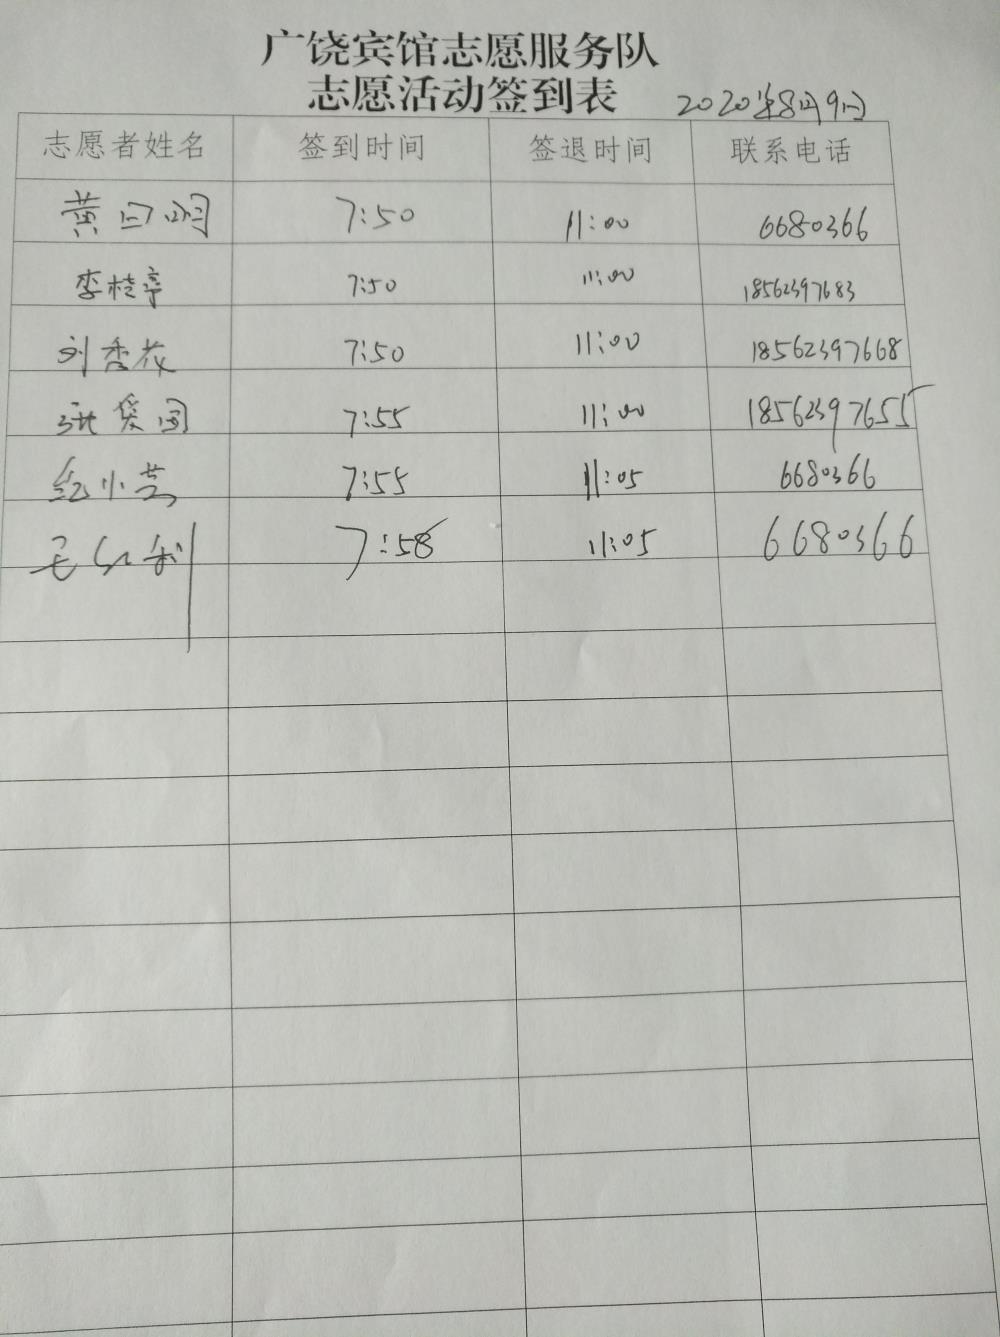 广饶宾馆志愿服务队
志愿活动签到表 2020年8月9日
志愿者姓名 签到时间 签退时间 联系电话
黄 7:50 11:00 6680366
李桂亭 7:50 11:00 18562397683
刘秀花 7:50 11:00 18562397668
7:55 11:00 18562397655
纪小芸 7:55 11:05 6680366
王红利 7:58 11:05 6680366